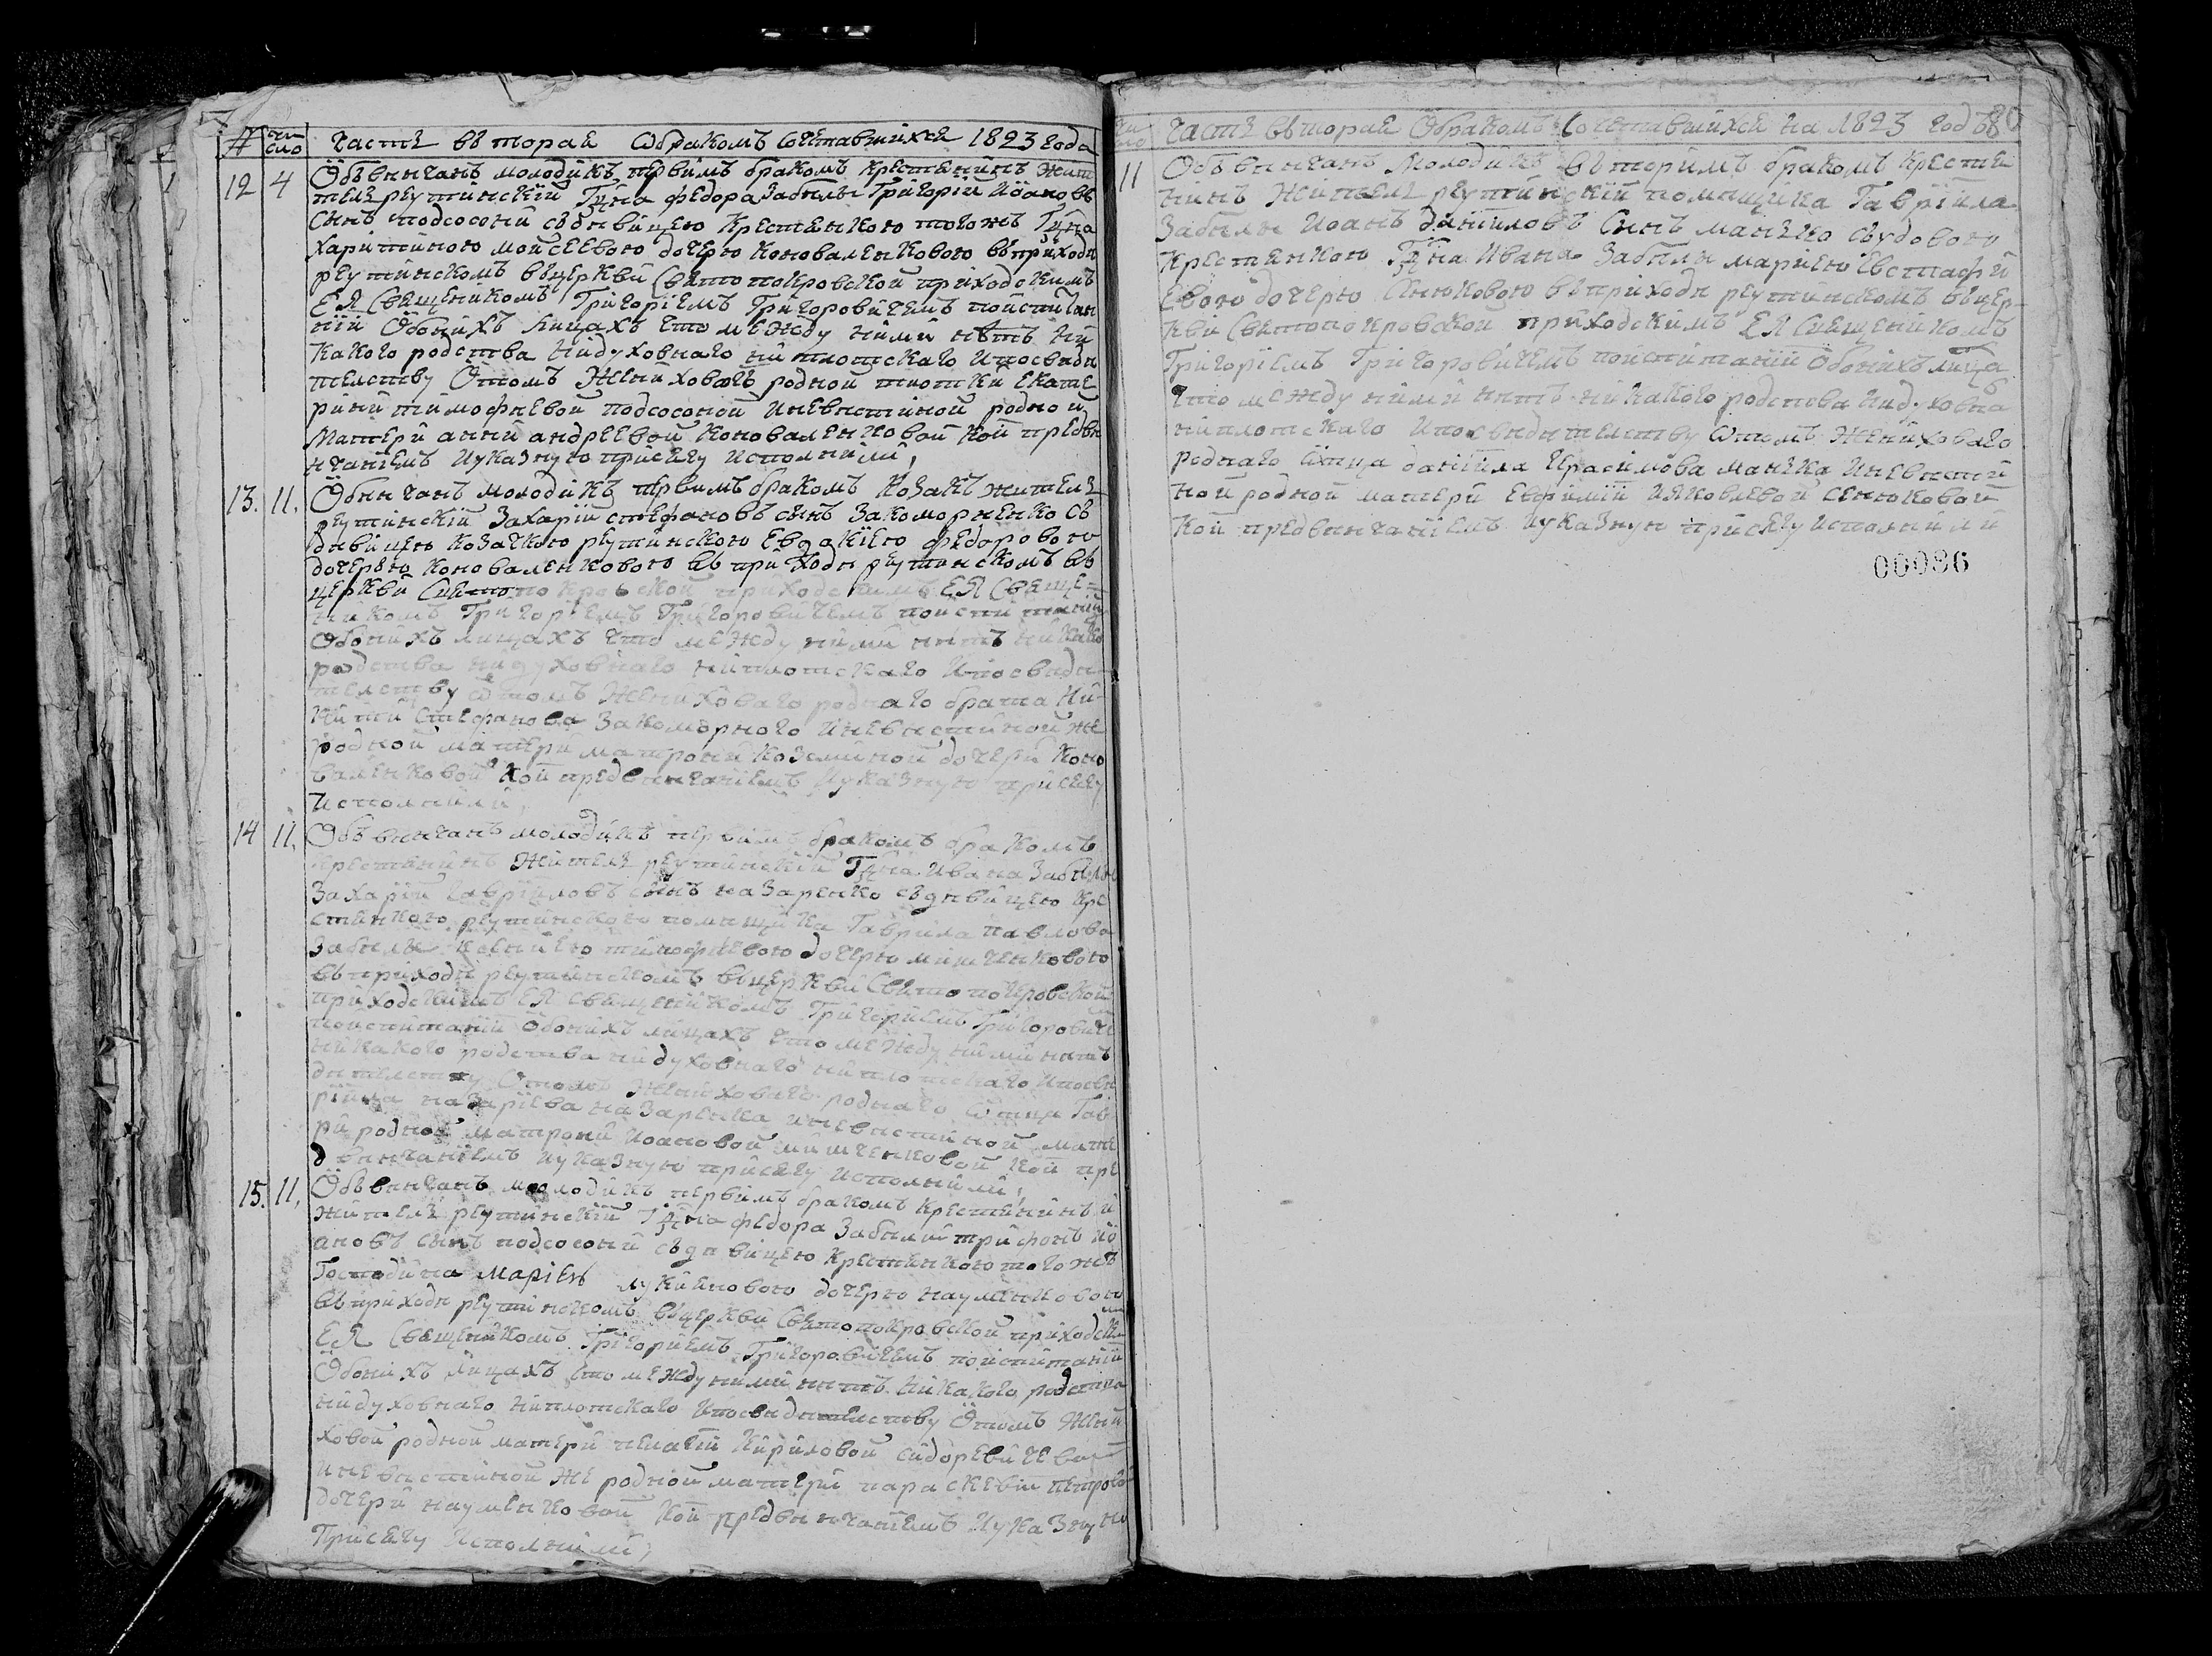 № число Часть вторая Обракомъ сочетавшихся 1823 года
12 4 Объвѣнчанъ молодикъ первимъ бракомъ крестянинъ жит
тель реутинскій Гдна федора Забѣлы Григорій Иоановъ
Синъ подсосоній съдѣвицею крестянкою тогожъ Гдна
харитиною мойсеевою дочерю коноваленковою въприходѣ
реутинскомъ въцерквй Святопокровской приходскимъ
ЕЯ Священикомъ Григоріемъ Григоровичемъ поиспитан
ніи Обоихъ лицахъ что между ними нѣтъ ни
какого родства нидуховнаго ни плотскаго ипосвидѣ
телству Отомъ Женихової родной тиотки екате
рини тимофѣевой подсосоной иневѣстиной родной
Матери анни андреевой коноваленковой кой предвѣ
нчаніемъ иуказную присягу исполнили,
13. 11. Обвѣнчанъ молодикъ первимъ бракомъ козакъ житель
реутинскій Захарій стефановъ синъ Закоморненко съ
дѣвицею козачкою реутинскою Евдокіею федоровою
дочерею коноваленковою въ приходѣ реутинскомъ въ
церкви Святопокровской приходскимъ ЕЯ Свяще-
никомъ Григоріемъ Григоровичемъ поиспитаніи
Обоихъ лицахъ что между ними нѣтъ никако
родства нидуховнаго ниплотскаго ипосвидѣ
телству отомъ женихового роднаго брата Ни-
кити Стефанова Закоморного иневѣстиной же
родной матери матрони козминой дочери коно
валенковой кой предвѣнчаніемъ иуказную присягу
исполнили,
14 11. Объвѣнчанъ молодикъ первимъ бракомъ бракомъ
крестянинъ житель реутинскій Гдна Ивана Забѣлы
Захарій гавріиловъ синъ назаренко съдѣвицею кре
стянкою реутинскою помѣщика Гаврила павлова
Забѣлы тимофѣевою дочерю мишченковою
въприходѣ реутинскомъ въцеркви Святопокровской
приходскимъ ЕЯ священикомъ Григоріемъ Григорович
поиспитаніи Обоихъ лицахъ что между ними нѣтъ
никакого родства нидуховнаго ниплотскаго ипосви
дѣтелству Отомъ Женихового роднаго отца Гав
ріила назаріева назаренка иневѣстиной мате
ри родной матрони Иоановой мишченковой кой пре
двѣнчаніемъ иуказную присягу исполнили,
15. 11, Объвѣнчанъ молодикъ первимъ бракомъ крестянинъ и
житель реутинскій Гдна федора Забѣли трифонъ ио
ановъ синъ подсосоній съдѣвицею крестянкою тогожъ
Господина Маріею лукияновою дочерю науменковою
въприходѣ реутинскомъ въцеркви Святопокровской приходским
ЕЯ Священикомъ Григоріемъ Григоровичемъ поиспитаніи
Обоихъ лицахъ что между ними нѣтъ никакого родства
нидуховнаго ниплотскаго ипосвидѣтелству Отомъ Жени
ховой родной матери пелагіи Кириловой сидоревичевой
иневѣстиной же родной матери параскевіи петрово
дочери науменковой кой предвѣнчаніемъ иуказную
Присягу исполнили,
число Часть вторая Обракомъ Сочетавшихся на 1823 годъ 80
11 Объвѣнчанъ Молодикъ вьторимъ бракомъ крестя
нинъ житель реутинскій помѣщика Гавріила
Забѣлы Иоанъ даніиловъ Синъ манько съудовою
крестянкою Гдна Ивана Забѣлы маріею Евстафи
Евою дочерю Сенюковою въприходѣ реутинскомъ въцер-
кви Святопокровской приходскимъ ЕЯ Священикомъ
Григоріемъ Григоровичемъ поиспитаніи Обоихъ лица
что между ними нѣтъ никакого родства нидуховна
ниплотскаго ипосвидѣтелству отомъ Женихового
роднаго отца даніила Ирасимова манька иневѣсти
ной родной матери Евфиміи Ияковлевой сенюковой
кой предвѣнчаніемъ иуказную присягу исполнили
00086